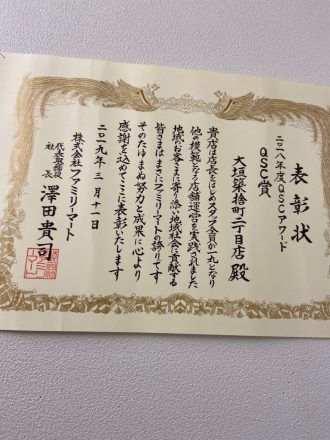 表彰状
二〇一八年度QSCアワード
QSC賞
大垣築捨町二丁目店 殿
貴店は店長をはじめスタッフ全員が一丸となり
他の模範となる店舗運営を実践されました
地域のお客さまに寄り添い地域社会に貢献する
皆さまはまさにファミリーマートの誇りです
そのたゆまぬ努力と成果に心より
感謝を込めてここに表彰いたします
二〇一九年 三月十一日
株式会社ファミリーマート
代表取締役
社長 澤田貴司